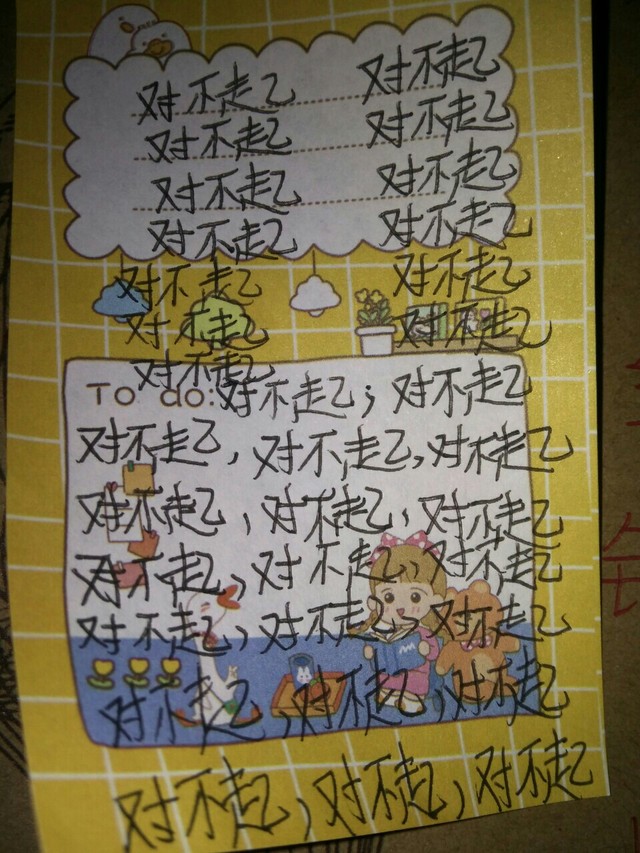 对不起 对不起
对不起 对不起
对不起 对不起
对不起 对不起
对不起 对不起
对不起 对不起
对不起
To do: 对不起; 对不起
对不起, 对不起, 对不起
对不起, 对不起, 对不起
对不起, 对不起, 对不起
对不起, 对不起, 对不起
对不起, 对不起, 对不起
对不起, 对不起, 对不起